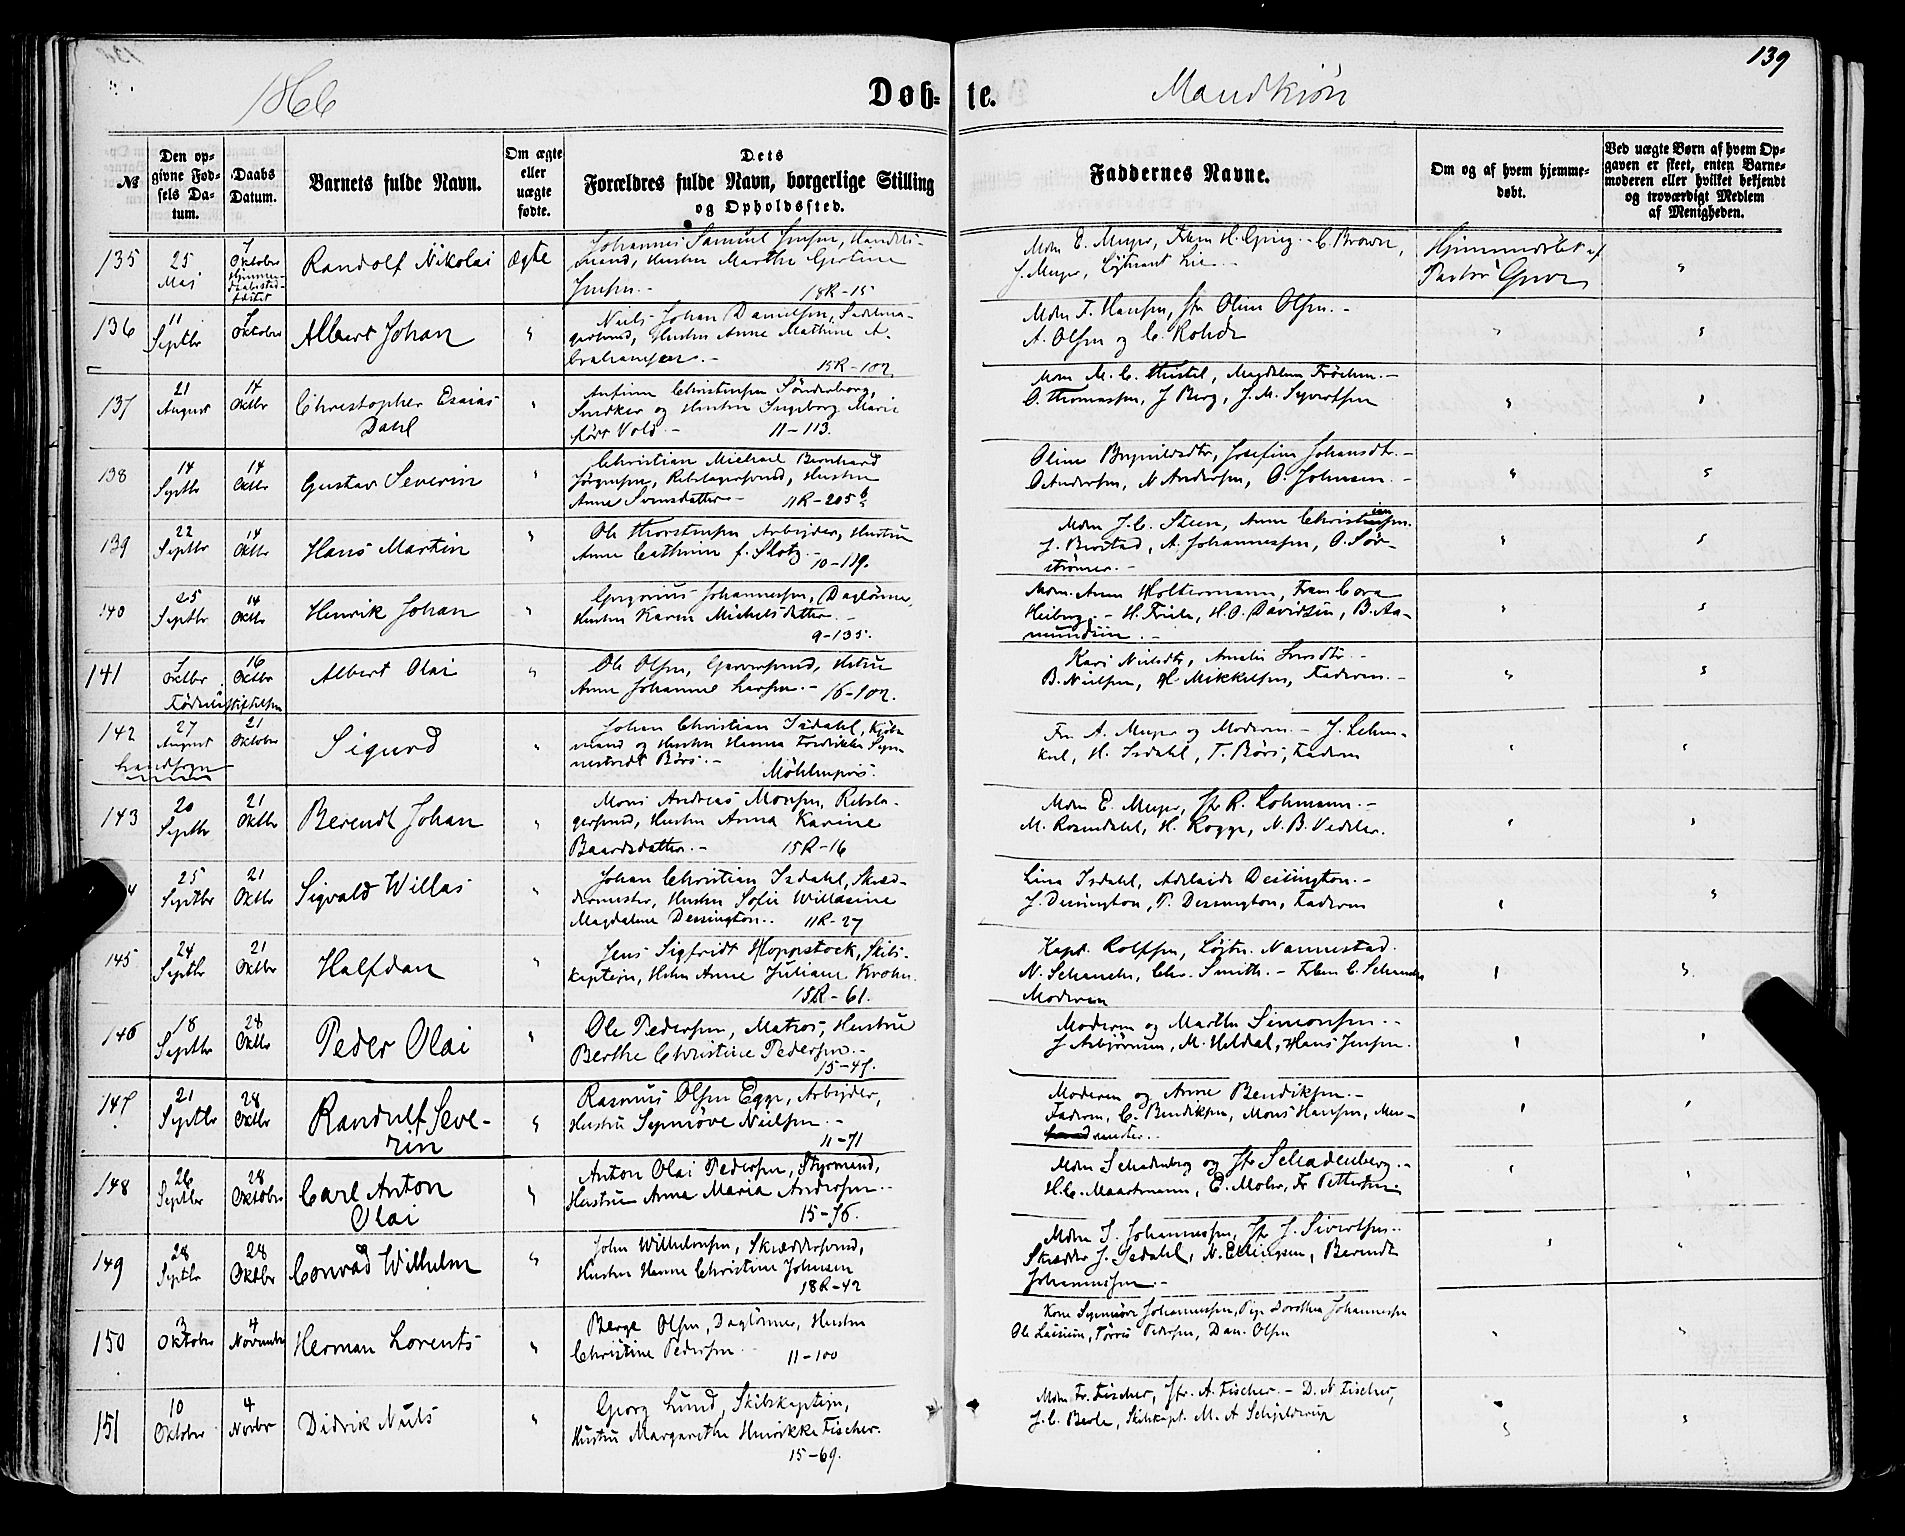 139
1866
Døb- te.
Mandkjøn
№
Den op-
givne Fød-
sels Da-
tum.
Daabs
Datum.
Barnets fulde Navn.
Om ægte
eller
uægte
fødte.
Dets
Forældres fulde Navn, borgerlige Stilling
og Opholdssted.
Faddernes Navne.
Om og af hvem hjemme-
døbt.
Ved uægte Børn af hvem Op-
gaven er skeet, enten Barne-
moderen eller hvilket bekjendt
og troværdigt Medlem
af Menigheden.
135
25
Maj
7
Oktober
Randolf Nikolai
Ægte
Johannes Samuel Jensen, Handels-
mand, Hustru Marthe Gjertine
Jensen.-
18R-15
Mdm E. Meyer, Frkn H. Grieg.- C. Brown,
J. Meyer, Løjtnant Lie.-
Hjemmedøbt af
Pastor Grove
136
11
Septbr
7
Oktober
Albert Johan
Niels Johan Danielsen, Sadelma-
gersvend, Hustru Anne Mathine A-
brahamsen.-
15R-102
Mdm F. Hansen, Jfr Oline Olsen.-
A. Olsen og C. Rohde
137
21
August
14
Oktbr
Christopher Esaias
Dahl
Anfinn Christensen Sønderborg,
Snedker og Hustru Ingeborg Marie
født Vold.-
11-113.
Mdm M. C. Hustel, Magdalene Frøchen.-
O. Thomassen, J Berg, J. M. Syvertsen
138
14
Septbr
14
Oktbr
Gustav Severin
Christian Michael Bernhard
Jørgensen, Rebslagersvend, Hustru
Anne Svensdatter-
11R-205 b
Oline Brynildsdtr, Josefine Johansdtr.-
O Andersen, N Andersen, O. Johnsen.-
139
22
Septbr
14
Oktbr
Hans Martin
Ole Thorstensen Arbejder, Hustru
Anne Cathrine f. Slotz.-
10-119.
Mdm J. C. Steen, Anne Christensen.
J. Berstad, A. Johannessen, O. Sør-
strømer.-
140
25
Septbr
14
Oktbr
Henrik Johan
Gregorius Johannessen, Daglønner,
Hustru Karen Michelsdatter.-
9-135.
Mdm. Anne Holtermann, Frøken Cora
Heiberg.- H. Friele, H. O. Davidsen, B. Aa-
mundsen.-
141
7
Oktbr
16
Oktbr
Fødselsstiftelsen
Albert Olai
Ole Olsen, Garversvend, Hstru
Anne Johanne Larsen.-
16-102.
Kari Nielsdtr, Amalie Iversdtr.-
B. Nielsen, H Mikkelsen, Faderen.-
142
Landsogn
27
August
21
Oktober
Sigurd
Johan Christian Isdahl, Kjøb-
mand og Hustru Hanna Fredrikke Syn-
nestvedt Børs.-
Møhlenpris.
Fru A. Meyer og Moderen.- J. Lehm-
kul, H. Isdahl, T. Børs, Faderen
143
20
Septbr
21
Oktbr
Berendt Johan
Mons Andreas Monsen, Rebsla-
gersvend, Hustru Anna Karine
Baardsdatter.-
15R-16
Mdm E. Meyer, Jfr R. Lohmann.-
M. Rosendahl, H. Rogge, N. B. Vedeler.
25
Septbr
21
Oktbr
Sigvald Willas
Johan Christian Isdahl, Skræd-
dermester, Hustru Sofie Willasine
Magdalene Dessington..
11R-27
Lina Isdahl, Adelaide Dessington.-
J. Dessington, P. Dessington, Faderen
145
24
Septbr
21
Oktbr
Halfdan
Jens Sigfridt Hopstock, Skibs-
kaptejn, Hstru Anne Juliane Krohn.
15R-61.
Kapt. Rolfsen, Løjtn. Nannestad.
N. Schancke, Chr. Smith.- Frken C. Schancke
Moderen
146
18
Septbr
28
Oktbr
Peder Olai
Ole Pedersen, Matros, Hustru
Berthe Christine Pedersen.-
15-47.
Moderen og Marthe Simonsen.-
J Asbjørnsen, M. Heldal, Hans Jensen.
147
21
Septbr
28
Oktbr
Randulf Seve-
rin
Rasmus Olsen Egge, Arbejder,
Hustru Synnøve Nielsen.-
11-71
Moderen og Anne Bendiksen.-
Faderen, C. Bendiksen, Mons Hansen,
148
26
Septbr
28
Oktober
Carl Anton
Olai
Anton Olai Pedersen, Styrmand,
Hustru Anna Maria Andersen..
15-76.
Mdm Schadenberg og Jfr Schadenberg.-
H. C. Maartmann, E. Mohr, Fr Pettersen.
149
28
Septbr
28
Oktbr
Conrad Wilhelm
John Wilhelmsen, Skræddersvend,
Hustru Hanne Christine Johnsen
18R-42
Mdm S. Johannessen, Jfr J. Sivertsen..
Skrædder J. Isdahl, N. Ellingsen, Berendt
Johannessen.-
150
3
Oktober
4
November
Herman Lorents
Berge Olsen, Daglønner, Hustru
Christine Pedersen
11-100
Kone Synnøve Johannessen, Pige Dorothea Johannessen
Ole Larsen, Pedersen, Dan. Olsen
151
10
Oktober
4
Novbr
Didrik Niels
Georg Lund, Skibskaptejn,
Hustru Margarethe Henrikke Fischer.
15-69.
Mdm Fr. Fischer, Jfr. A. Fischer.- D. N Fischer,
J. C. Berle, Skibskapt. M. A Schjelderup